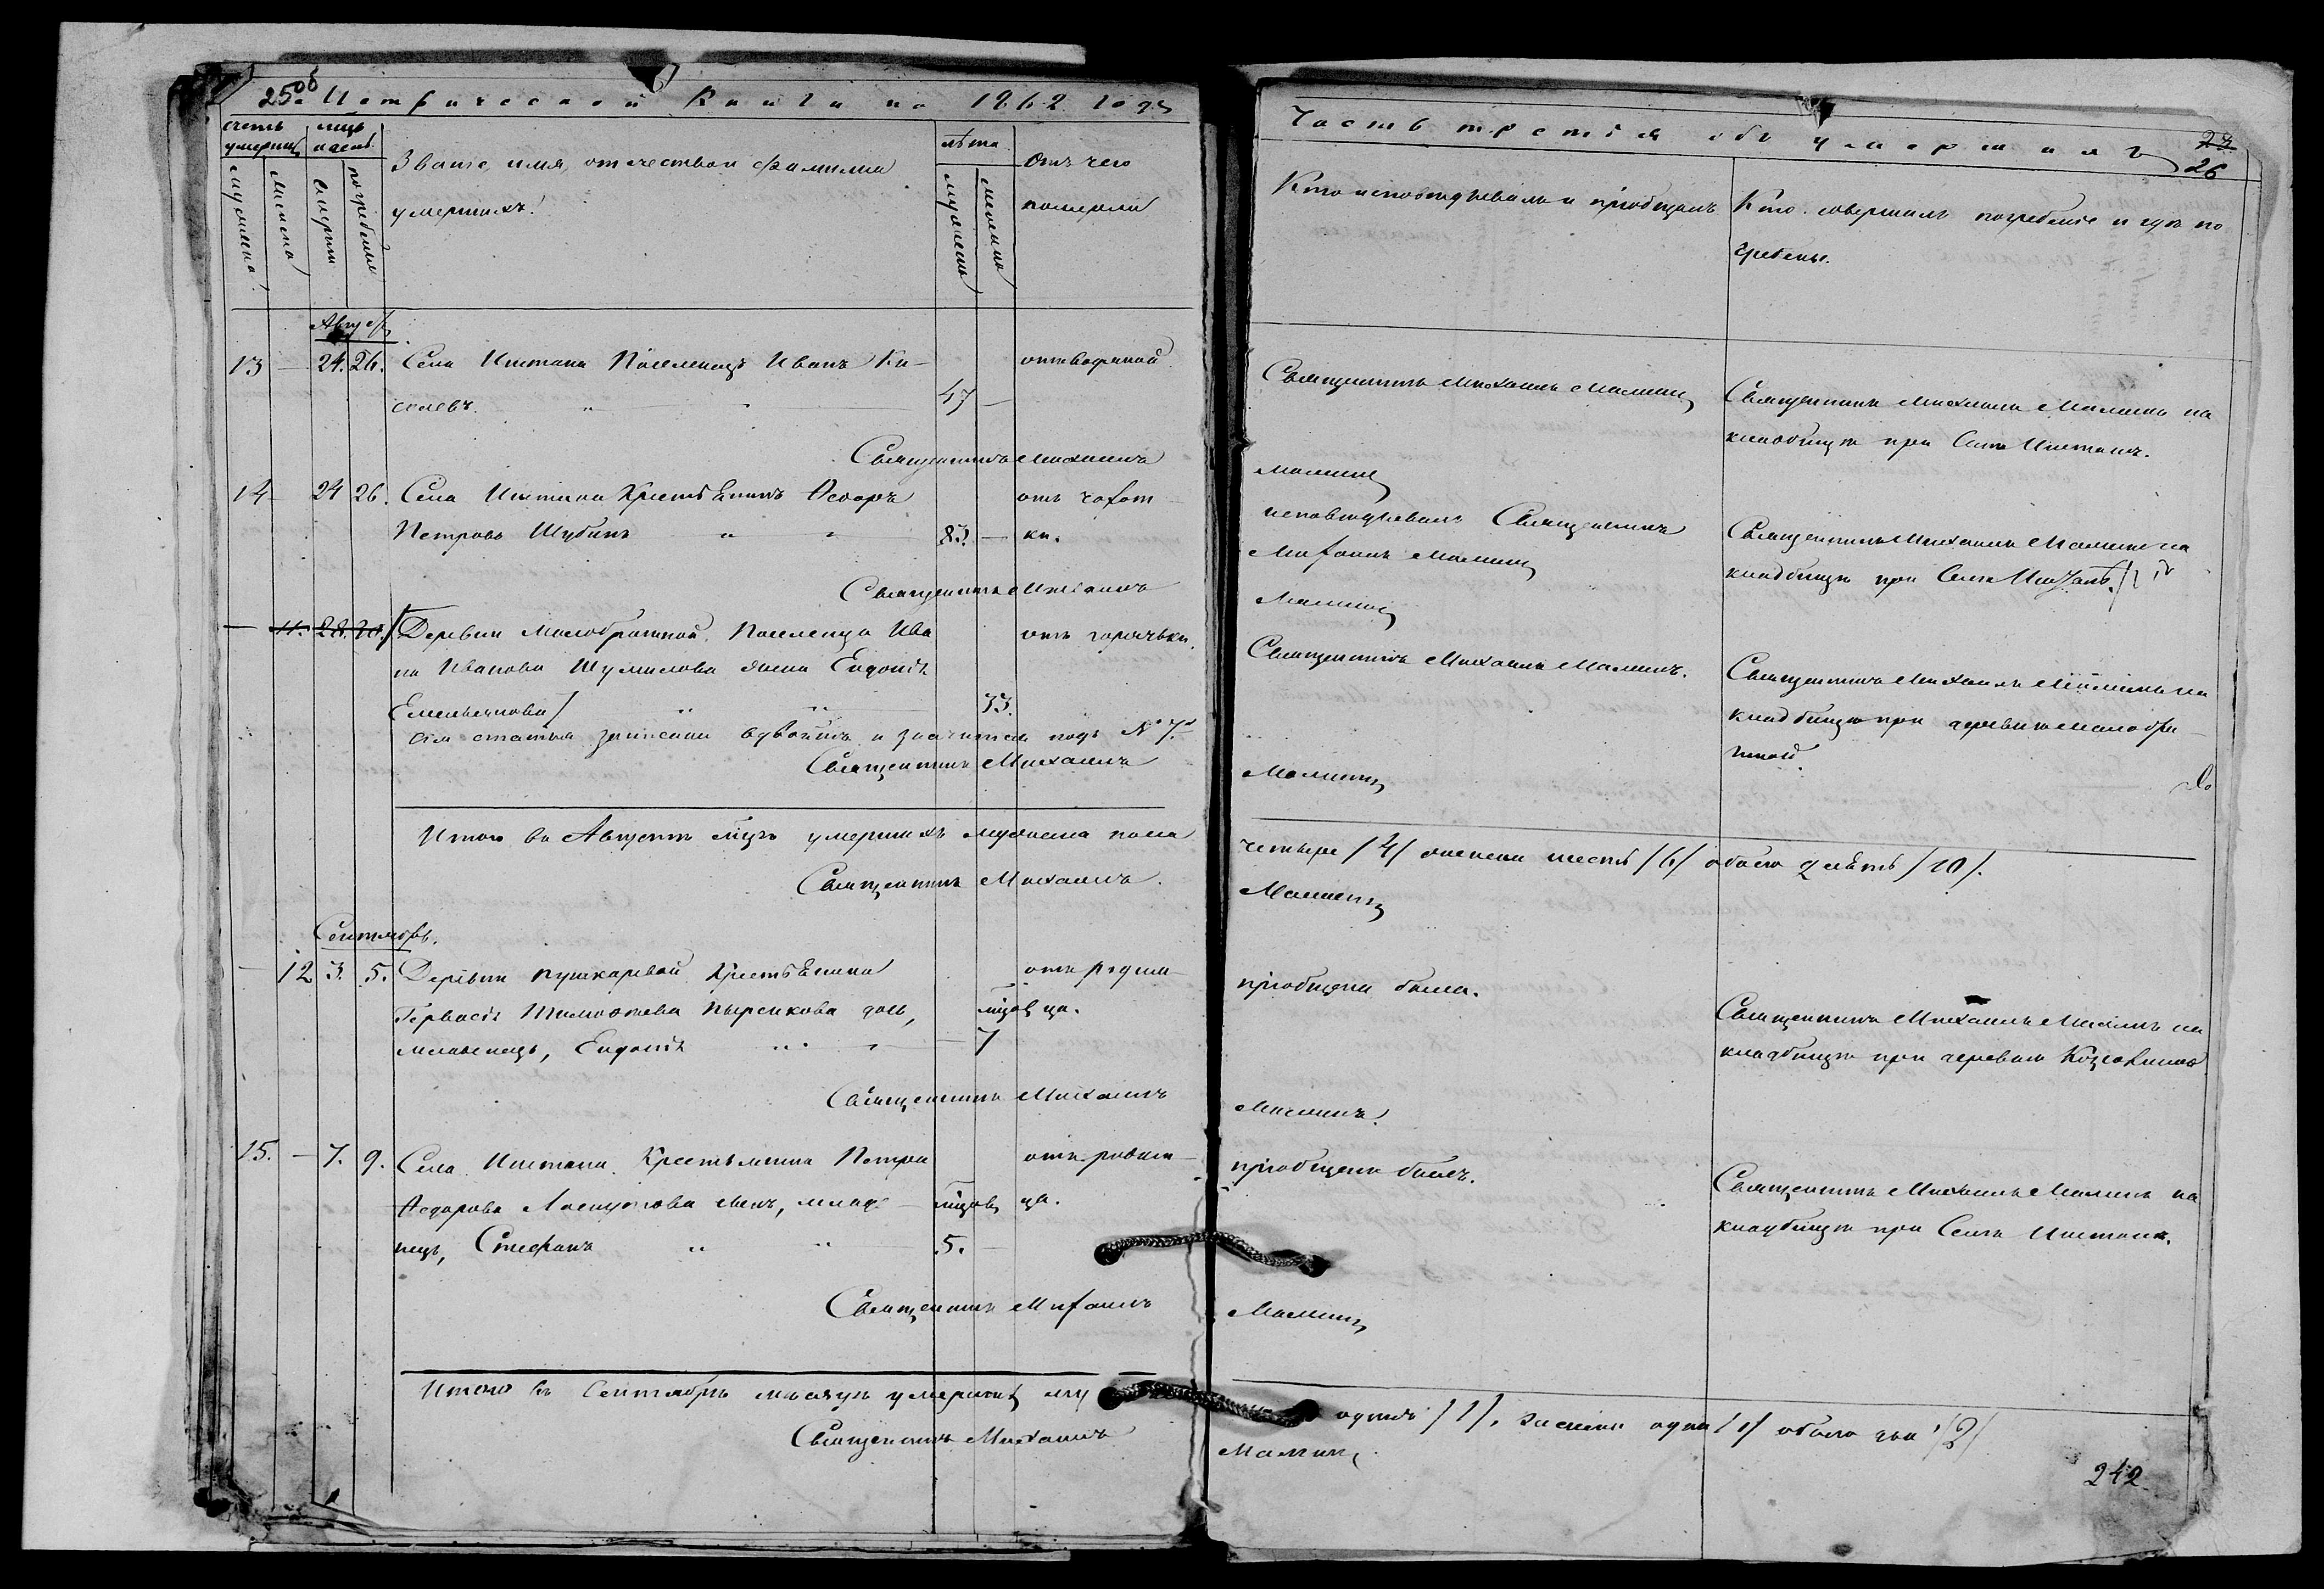 25 об
Метрической Книги на 1862 годъ
счетъ умершихъ
мужеска
женска
мцъ и день
смерти
погребенія
Званіе, имя, отчество и фамилія
умершихъ.
лѣта
мужеска
женска
Отъ чего
померли
Августъ
13 — 24. 26. Села Иштана Поселенецъ Иванъ Ки-
селевъ. 47 —
отъ водяной
Священникъ Михаилъ
14 — 24 26. Села Иштана Крестьянинъ Ѳедоръ
Петровъ Шубинъ 83. —
отъ чахот-
ки.
Священникъ Михаилъ
— 11. 28. 30. Деревни Малобратной Поселенца Ива
на Иванова Шумилова жена Евдокія
Емельянова 33.
отъ горячьки.
сія статья записана вдвойнѣ и значится подъ № 7.
Священникъ Михаилъ
Итого въ Августѣ мцѣ умершихъ мужеска пола
Священникъ Михаилъ.
Сентябрь.
— 12 3. 5. Деревни Пушкаревой Крестьянина
Гервасія Тимоѳеева Пыренкова дочь,
младенецъ, Евдокія мцов 7
отъ родим-
ца.
Священникъ Михаилъ
15. — 7. 9. Села Иштана Крестьянина Петра
Ѳедорова сынъ, младе-
нецъ, Стефанъ мцовъ 5.
отъ родим-
ца.
Священникъ Михаилъ
Итого въ Сентябрѣ месяцѣ умершихъ му
Священникъ Михаилъ
Часть третія объ умершихъ
26
Кто исповѣдывалъ и пріобщалъ
Кто совершалъ погребеніе и гдѣ по
гребены.
Священникъ Михаилъ Малинъ
Священникъ Михаилъ Малинъ на
кладбищѣ при Селѣ Иштанѣ.
Малинъ
исповѣдывалъ Священникъ
Михаилъ Малинъ
Священникъ Михаилъ Малинъ на
кладбищѣ при Селѣ Иштанѣ.
Малинъ
Священникъ Михаилъ Малинъ.
Священникъ Михаилъ Малинъ на
кладбищѣ при деревнѣ Малобра-
тной.
Малинъ
четыре /4/ женска шесть /6/ обоего десять /10/.
Малинъ
пріобщена была.
Священникъ Михаилъ Малинъ на
кладбищѣ при деревнѣ
Малинъ.
пріобщенъ былъ.
Священникъ Михаилъ Малинъ на
кладбищѣ при Селѣ Иштанѣ.
Малинъ
одинъ /1/, женска одна /1/ обоего два /2/
Малинъ
242